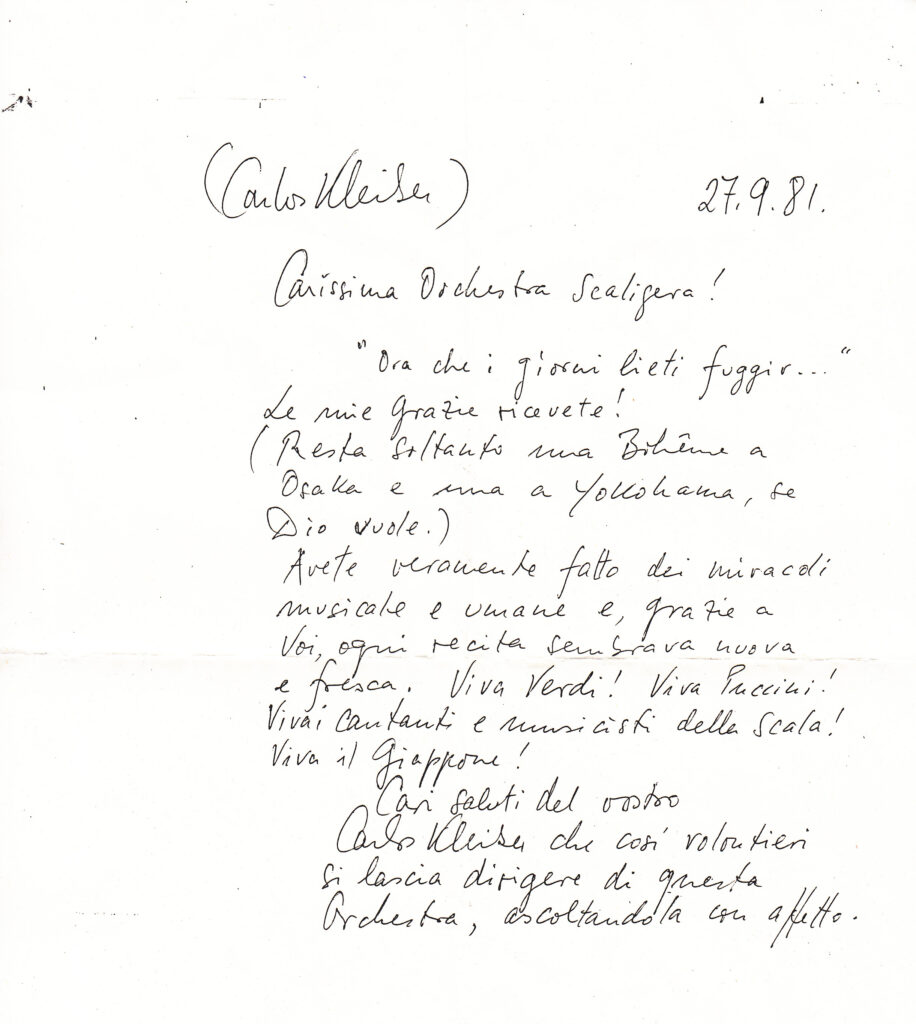 (Carlos Kleiber) 27.9.81.
Carissima Orchestra Scaligera!
"Ora che i giorni lieti fuggir..."
Le mie Grazie ricevete!
(Resta soltanto una Bohême a
Osaka e una a Yokohama, se
Dio vuole.)
Avete veramente fatto dei miracoli
musicale e umane e, grazie a
Voi, ogni recita sembrava nuova
e fresca. Viva Verdi! Viva Puccini!
Viva i cantanti e musicisti della Scala!
Viva il Giappone!
Cari saluti del vostro
Carlos Kleiber che così volontieri
si lascia dirigere di questa
Orchestra, ascoltandola con affetto.